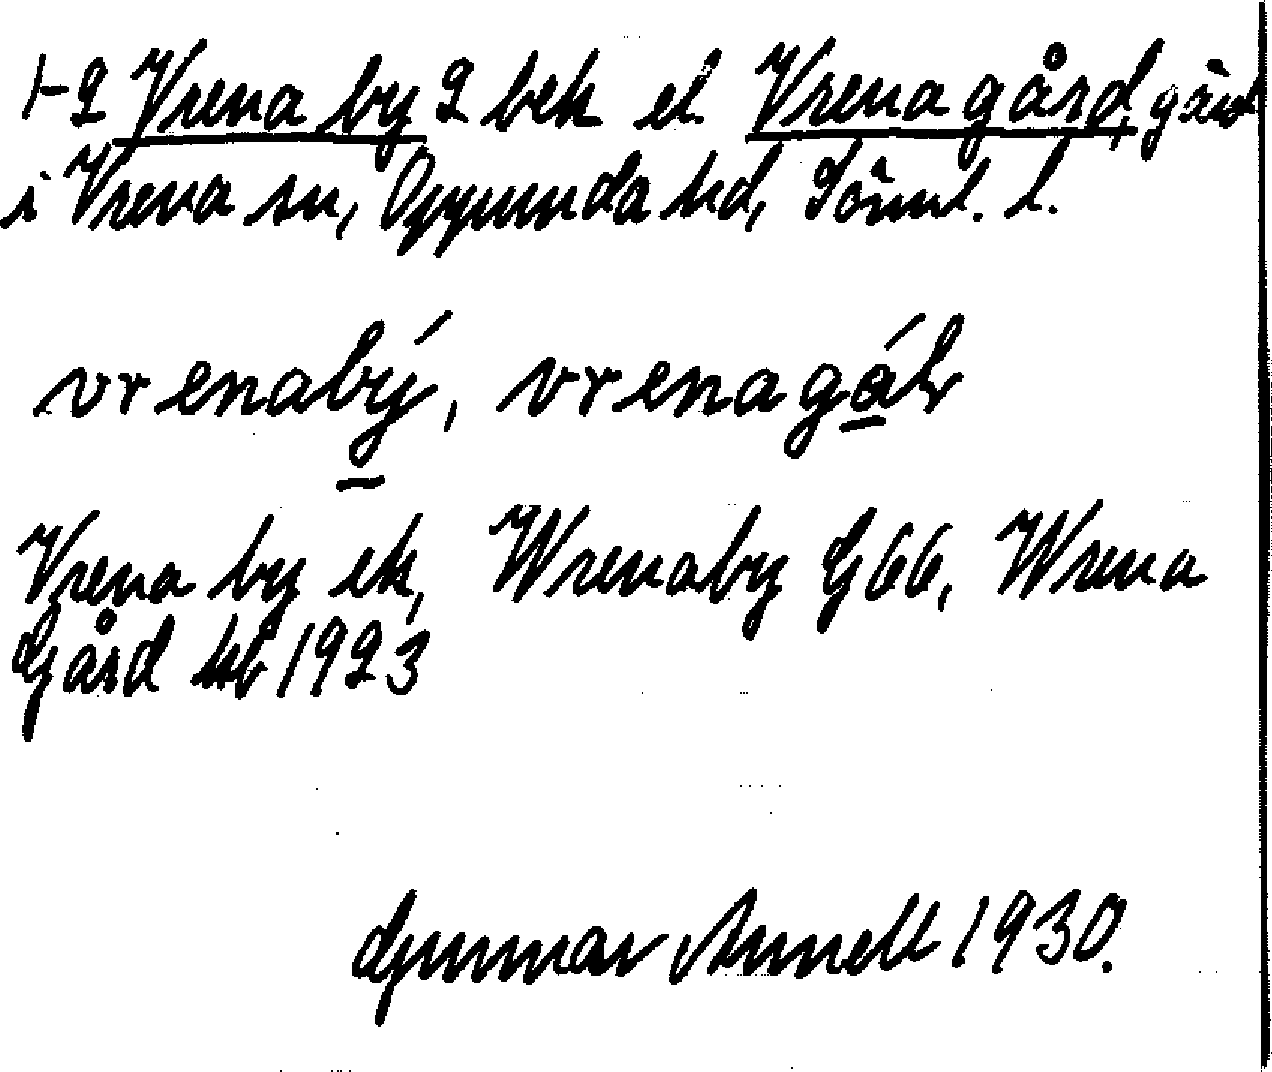 1-2 Vrena by 2 bek el. Vrena gård, gård
i Vrena sn, Oppunda hd, Söml. l.
vrenabý, vrenagáɫr
Vrena by ek, Wrenaby G 66, Wrena
Gård kb 1923
Gunnar Annell 1930.